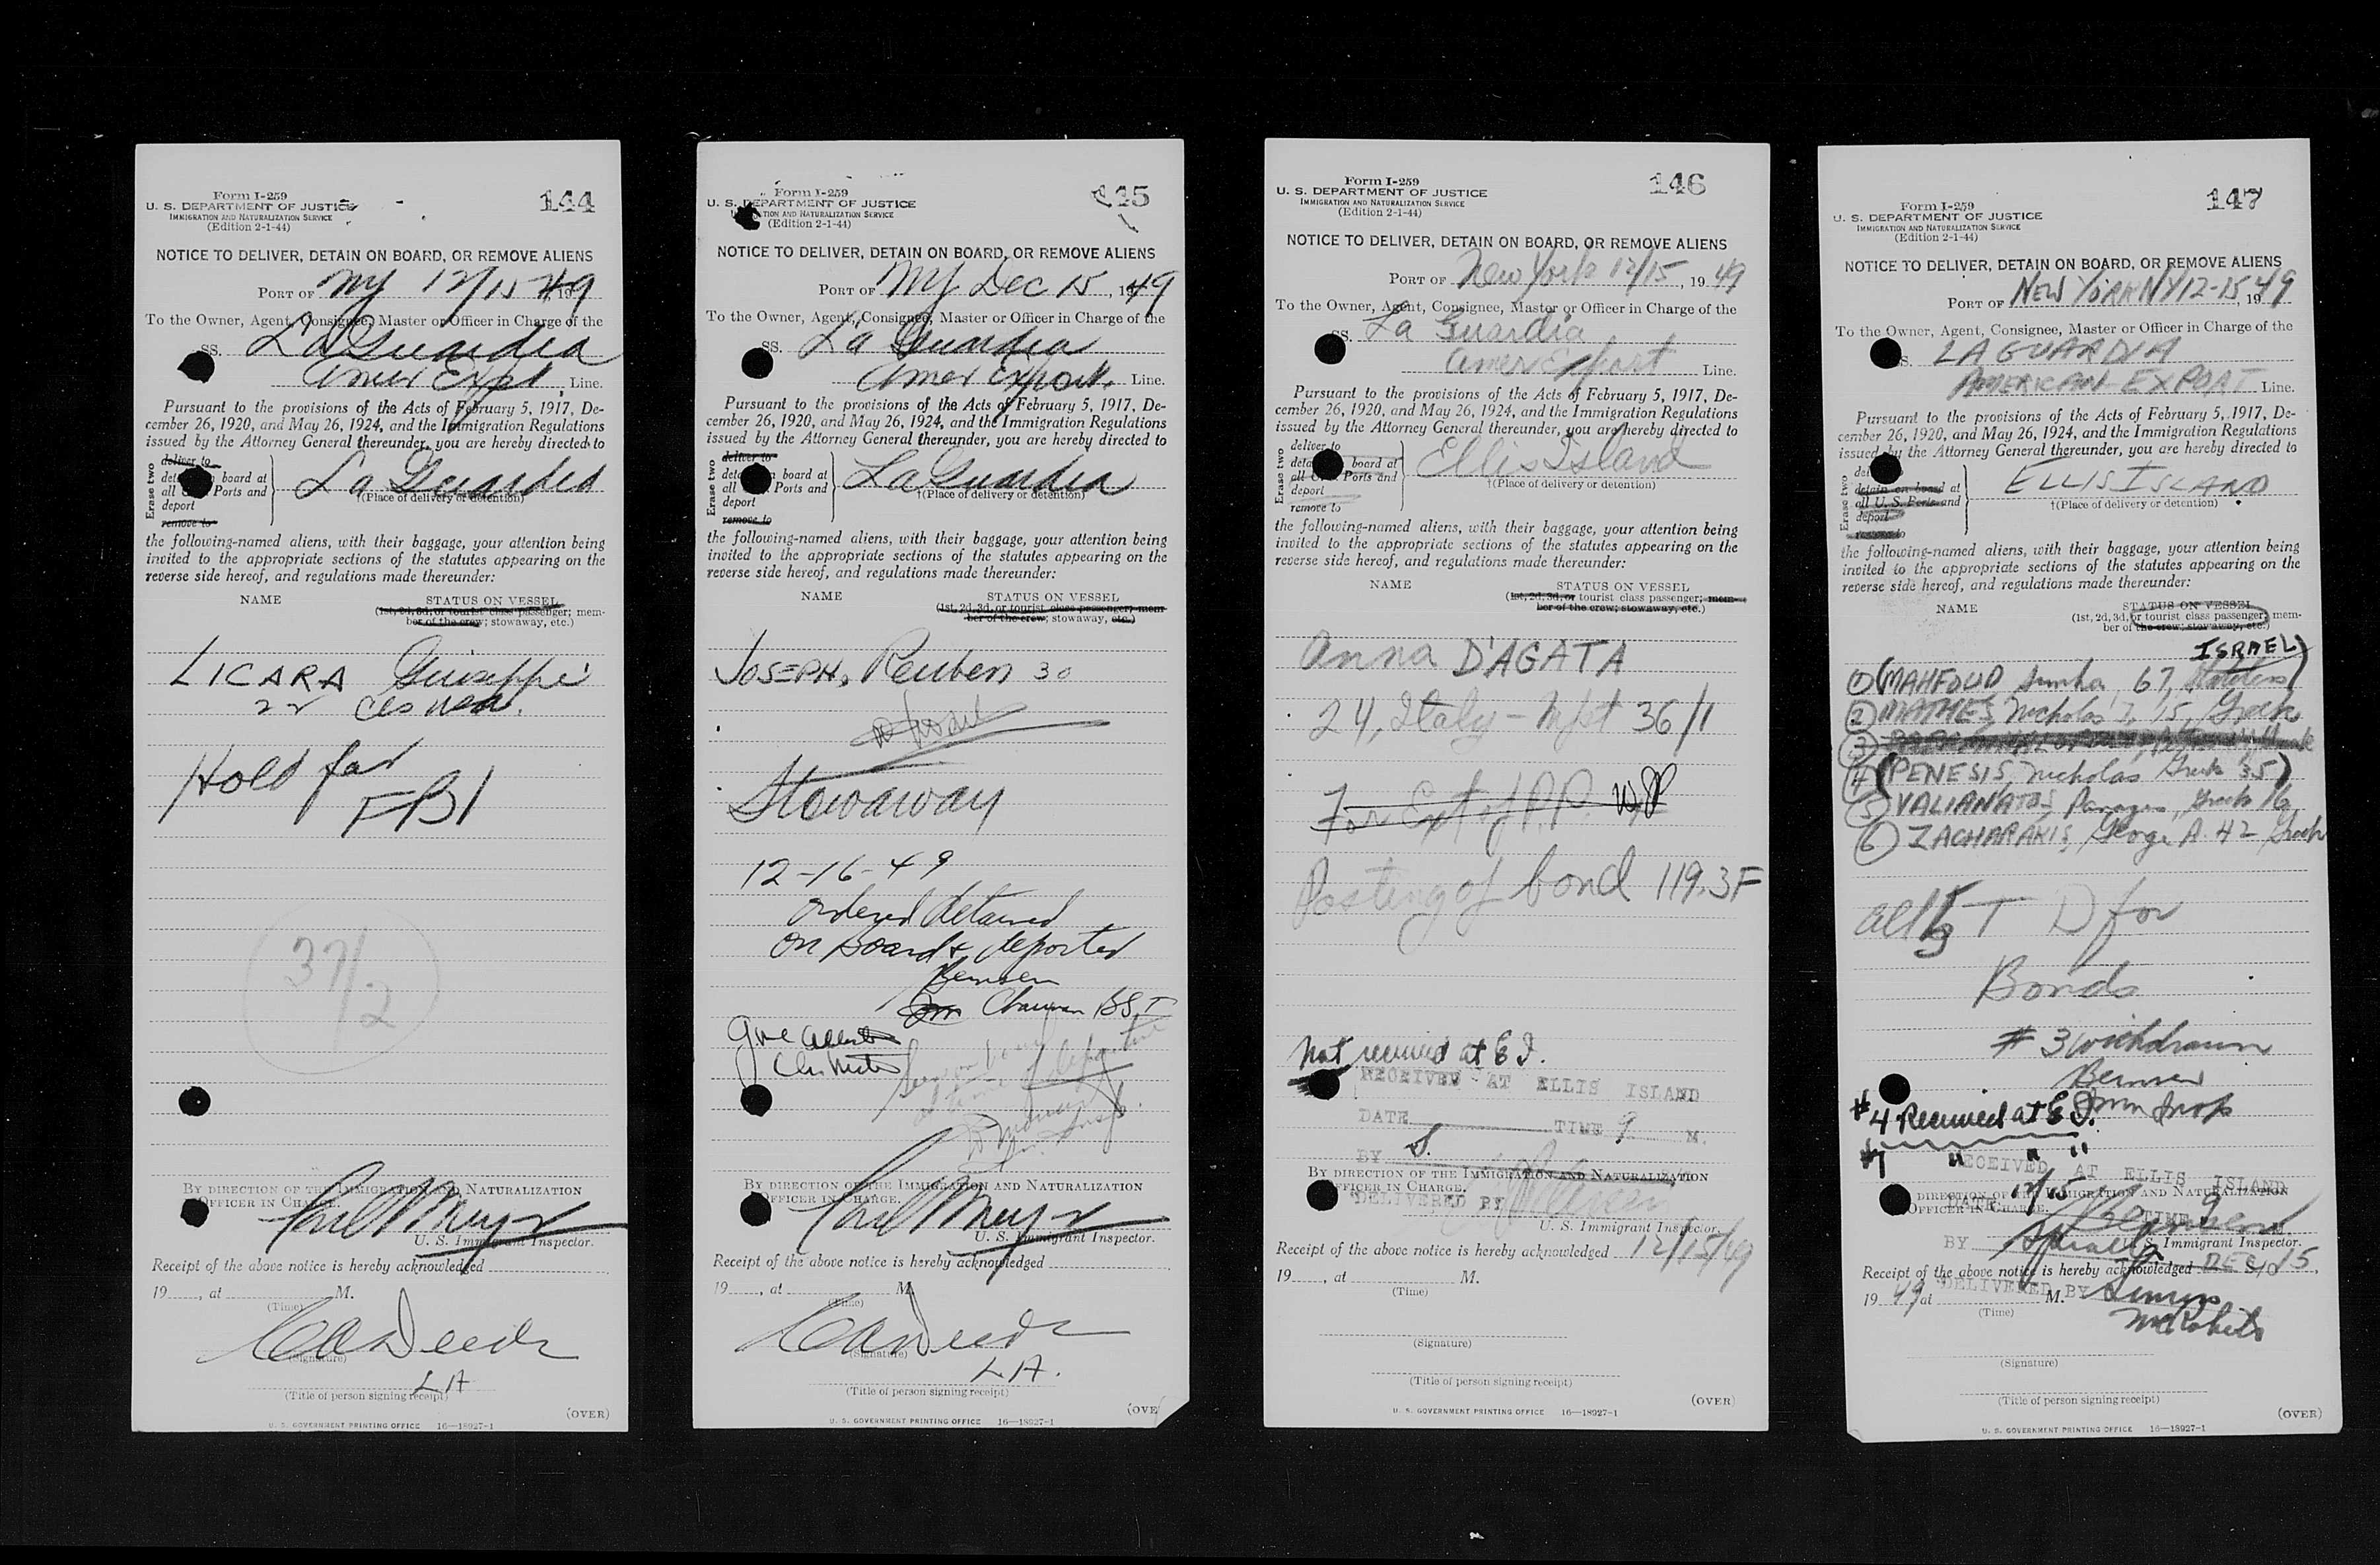 Form I-259
144
U. S. DEPARTMENT OF JUSTICE
IMMIGRATION AND NATURALIZATION SERVICE
(Edition 2-1-44)
NOTICE TO DELIVER, DETAIN ON BOARD, OR REMOVE ALIENS
PORT OF NY 12/15, 1949
To the Owner, Agent, Consignee, Master or Officer in Charge of the
SS. La Guardia
Amer Expt Line.
Pursuant to the provisions of the Acts of February 5, 1917, De-
cember 26, 1920, and May 26, 1924, and the Immigration Regulations
issued by the Attorney General thereunder, you are hereby directed to
Erase two
deliver to
board at
all Ports and
deport
remove to
La Guardia
(Place of delivery or detention)
the following-named aliens, with their baggage, your attention being
invited to the appropriate sections of the statutes appearing on the
reverse side hereof, and regulations made thereunder:
NAME
STATUS ON VESSEL
(1st, 2d, 3d, or tourist class passenger; mem-
ber of the crew; stowaway, etc.)
LICARA Giuseppe
22
Hold for
FBI
37/2
BY DIRECTION OF THE IMMIGRATION AND NATURALIZATION
OFFICER IN CHARGE.
U. S. Immigrant Inspector.
Receipt of the above notice is hereby acknowledged
19, at M.
(Time)
(Signature)
(Title of person signing receipt)
(OVER)
U. S. GOVERNMENT PRINTING OFFICE 16—18927-1
Form I-259
145
U. S. DEPARTMENT OF JUSTICE
IMMIGRATION AND NATURALIZATION SERVICE
(Edition 2-1-44)
NOTICE TO DELIVER, DETAIN ON BOARD, OR REMOVE ALIENS
PORT OF NY Dec 15, 1949
To the Owner, Agent, Consignee, Master or Officer in Charge of the
SS. La Guardia
Amer Export. Line.
Pursuant to the provisions of the Acts of February 5, 1917, De-
cember 26, 1920, and May 26, 1924, and the Immigration Regulations
issued by the Attorney General thereunder, you are hereby directed to
Erase two
deliver to
board at
all Ports and
deport
remove to
La Guardia
†(Place of delivery or detention)
the following-named aliens, with their baggage, your attention being
invited to the appropriate sections of the statutes appearing on the
reverse side hereof, and regulations made thereunder:
NAME
STATUS ON VESSEL
(1st, 2d, 3d, or tourist class passenger; mem-
ber of the crew; stowaway, etc.)
JOSEPH, Reuben 30
Stowaway
12-16-49
ordered detained
on board & deported
Chairman BSI
BY DIRECTION OF THE IMMIGRATION AND NATURALIZATION
OFFICER IN CHARGE.
U. S. Immigrant Inspector.
Receipt of the above notice is hereby acknowledged
19, at M.
(Time)
(Signature)
(Title of person signing receipt)
(OVE
U. S. GOVERNMENT PRINTING OFFICE 16—18927-1
Form I-259
146
U. S. DEPARTMENT OF JUSTICE
IMMIGRATION AND NATURALIZATION SERVICE
(Edition 2-1-44)
NOTICE TO DELIVER, DETAIN ON BOARD, OR REMOVE ALIENS
PORT OF New York 12/15, 1949
To the Owner, Agent, Consignee, Master or Officer in Charge of the
SS. La Guardia
Amer Export Line.
Pursuant to the provisions of the Acts of February 5, 1917, De-
cember 26, 1920, and May 26, 1924, and the Immigration Regulations
issued by the Attorney General thereunder, you are hereby directed to
Erase two
deliver to
board at
Ports and
deport
remove to
Ellis Island
†(Place of delivery or detention)
the following-named aliens, with their baggage, your attention being
invited to the appropriate sections of the statutes appearing on the
reverse side hereof, and regulations made thereunder:
NAME
STATUS ON VESSEL
(1st, 2d, 3d, or tourist class passenger; mem-
ber of the crew; stowaway, etc.)
Anna D'AGATA
24, Italy - 36/1
For Ext of P.P.
Posting of bond 119.3F
Not received at E I.
RECEIVED AT ELLIS ISLAND
DATE TIME 9 M.
BY S.
BY DIRECTION OF THE IMMIGRATION AND NATURALIZATION
OFFICER IN CHARGE.
DELIVERED BY
U. S. Immigrant Inspector.
Receipt of the above notice is hereby acknowledged 12/15/49
19, at M.
(Time)
(Signature)
(Title of person signing receipt)
(OVER)
U. S. GOVERNMENT PRINTING OFFICE 16—18927-1
Form I-259
147
U. S. DEPARTMENT OF JUSTICE
IMMIGRATION AND NATURALIZATION SERVICE
(Edition 2-1-44)
NOTICE TO DELIVER, DETAIN ON BOARD, OR REMOVE ALIENS
PORT OF NEW YORK NY 12-15, 1949
To the Owner, Agent, Consignee, Master or Officer in Charge of the
LA GUARDIA
AMERICAN EXPORT Line.
Pursuant to the provisions of the Acts of February 5, 1917, De-
cember 26, 1920, and May 26, 1924, and the Immigration Regulations
issued by the Attorney General thereunder, you are hereby directed to
Erase two
detain on board at
all U. S. Ports and
deport
remove to
ELLIS ISLAND
†(Place of delivery or detention)
the following-named aliens, with their baggage, your attention being
invited to the appropriate sections of the statutes appearing on the
reverse side hereof, and regulations made thereunder:
NAME
STATUS ON VESSEL
(1st, 2d, 3d, or tourist class passenger; mem-
ber of the crew; stowaway, etc.)
ISRAEL)
1 (MAHFOUD Simha, 67, Stateless)
2 MATHES, Nicholas J, 15, Greek
3
4 (PENESIS, Nicholas, Greek 35)
5 VALIANATOS, Greek 16
6 ZACHARAKIS, George A. 42 Greek
all T D for
Bonds
# 3 withdrawn
Imm Insp
#4 Received at E I.
#1 " " "
RECEIVED AT ELLIS ISLAND
BY DIRECTION OF THE IMMIGRATION AND NATURALIZATION
DATE 12/15 TIME 9
OFFICER IN CHARGE.
BY
U. S. Immigrant Inspector.
Receipt of the above notice is hereby acknowledged DEC 15,
1949 at M.
DELIVERED BY
(Time)
(Signature)
(Title of person signing receipt)
(OVER)
U. S. GOVERNMENT PRINTING OFFICE 16—18927-1